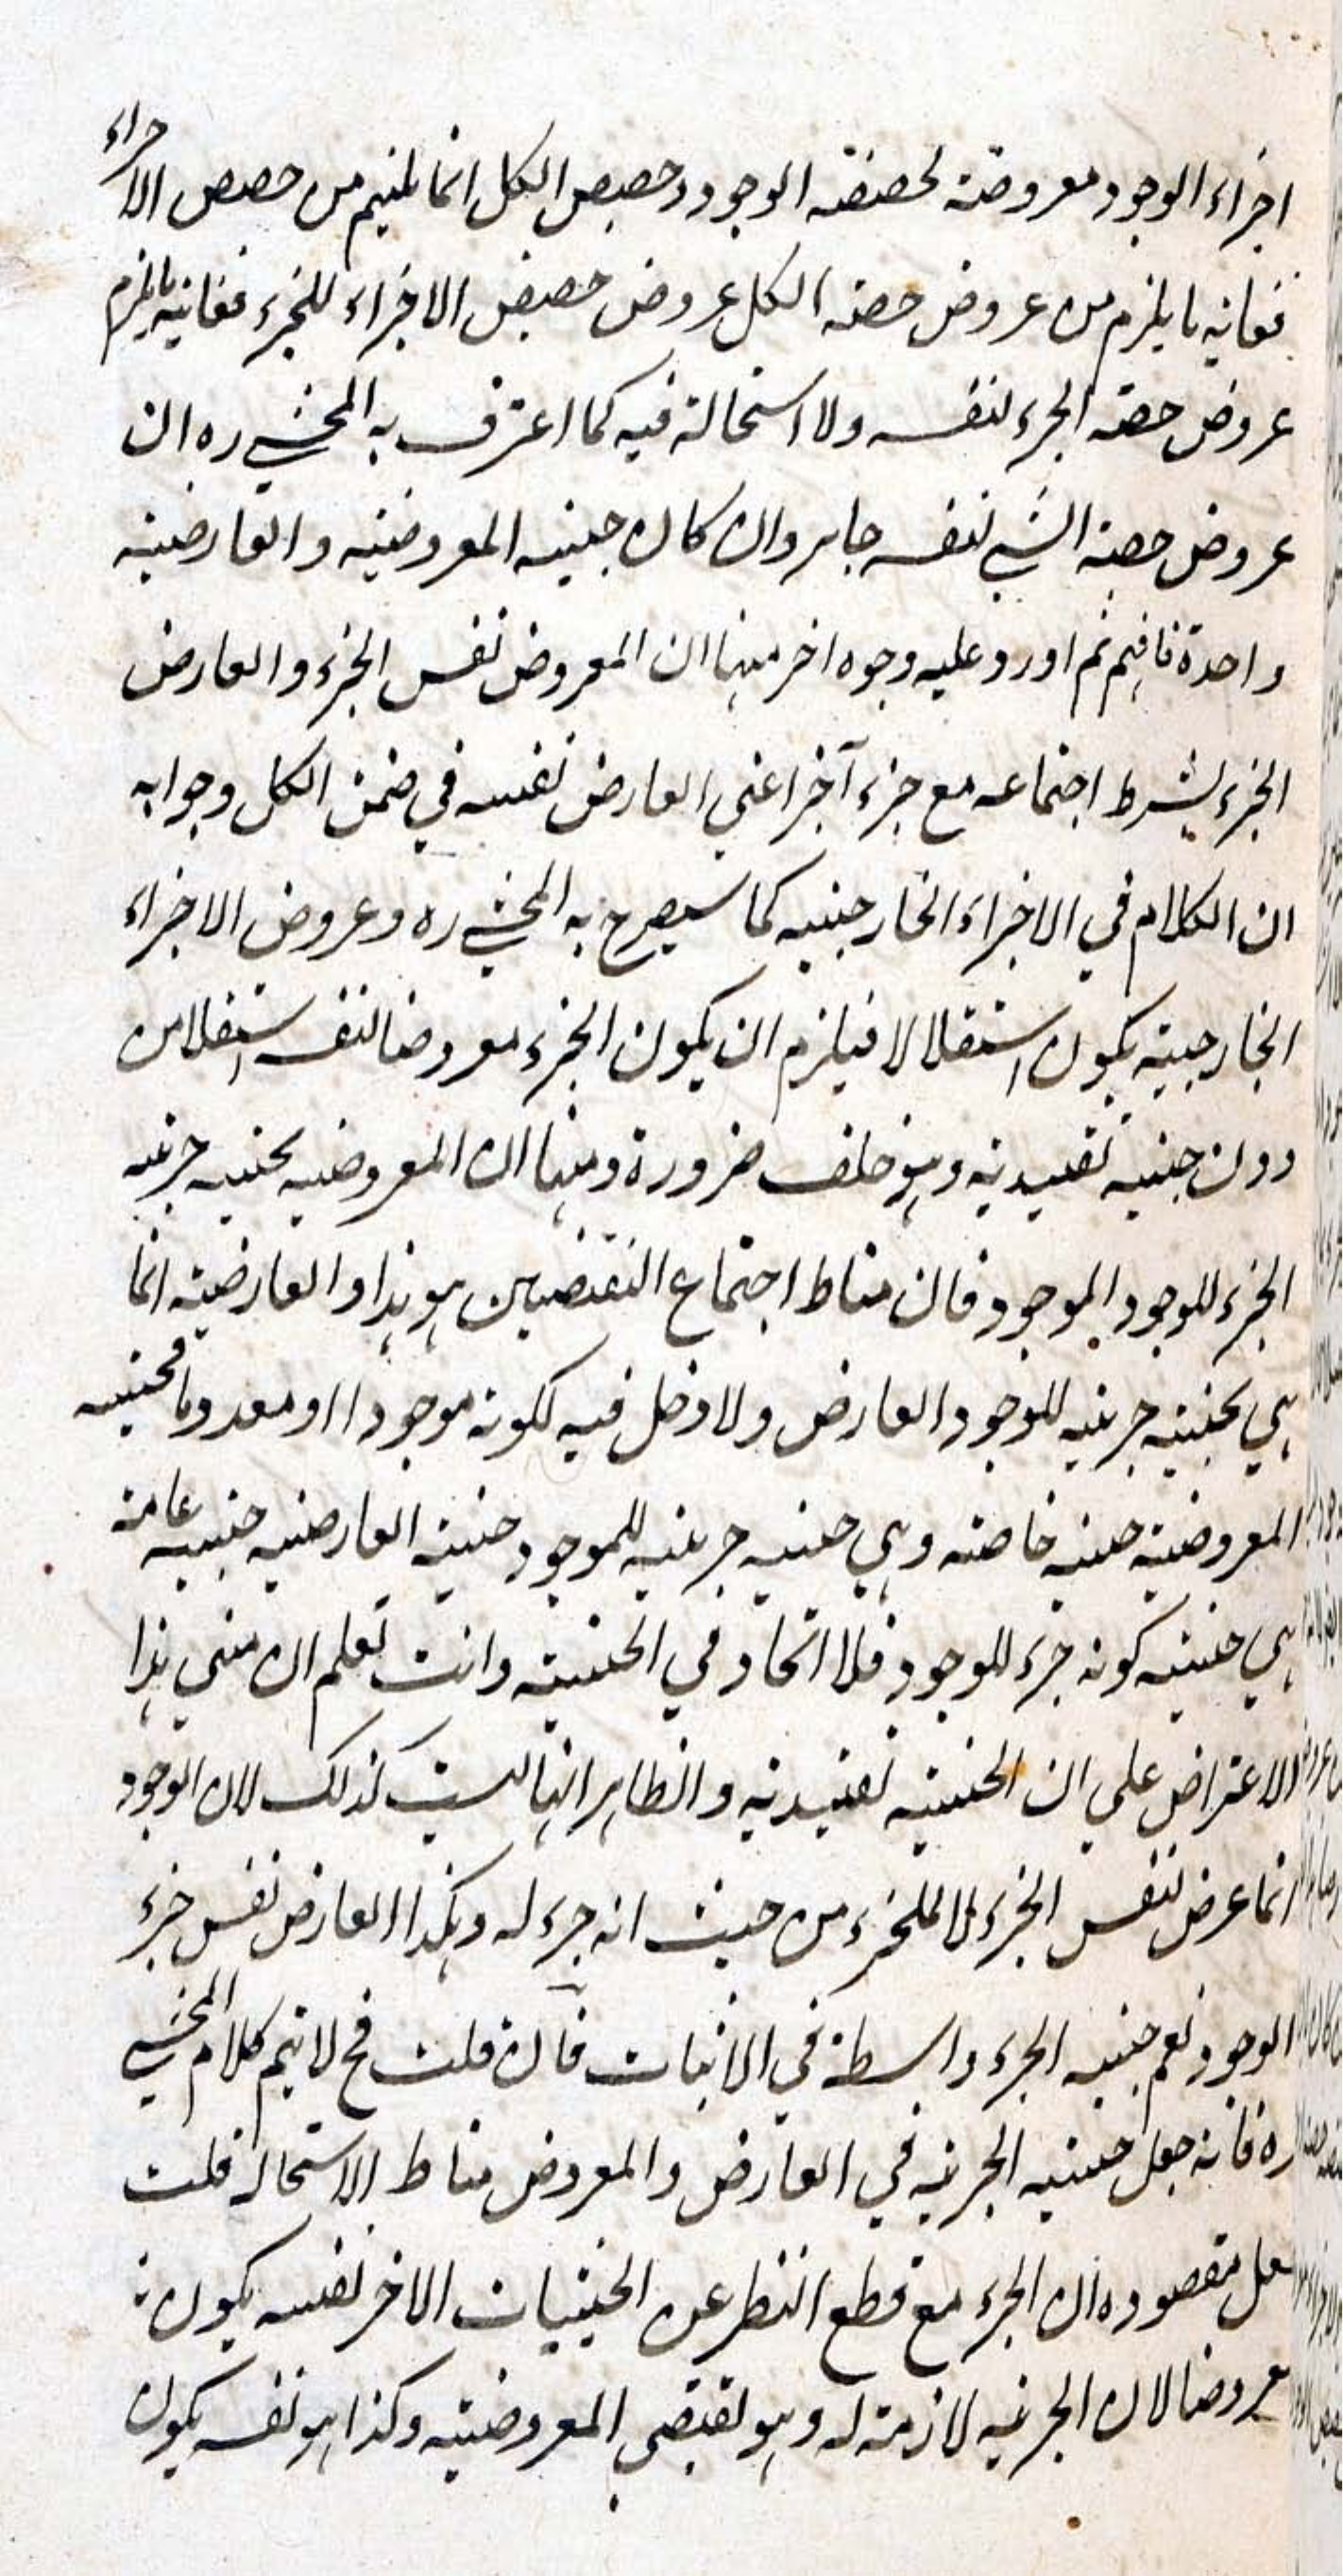 اجزاء الوجود معروضة لحصة الوجود وحصص الكل انما يلتئم من حصص الاجزاء
فغاية ما يلزم من عروض حصة الكل عروض حصص الاجزاء للجزء فغاية ما يلزم
عروض حصة الجزء لنفسه ولا استحالة فيه كما اعترف به المحشي ره ان
عروض حصة الشي لنفسه جايز وان كان حيثية المعروضية والعارضية
واحدة فافهم ثم اورد عليه وجوه اخر منها ان المعروض نفس الجزء والعارض
الجزء بشرط اجتماعه مع جزء آخر اعني العارض نفسه في ضمن الكل وجوابه
ان الكلام في الاجزاء الخارجية كما سيصرح به المحشي ره وعروض الاجزاء
الخارجية يكون استقلالا فيلزم ان يكون الجزء معروضا لنفسه استقلالا من
دون حيثية تقييدية وهو خلف ضرورة ومنها ان المعروضية بحيثية جزئية
الجزء للوجود الموجود فان مناط اجتماع النقيضين هو هذا والعارضية انما
هي بحيثية جزئية للوجود العارض ولا دخل فيه لكونه موجودا او معدوما فحيثية
المعروضية حيثية خاصة وهي حيثية جزئية للموجود حيثية العارضية حيثية عامة
هي حيثية كونه جزء للوجود فلا اتحاد في الحيثية وانت تعلم ان مبني هذا
الاعتراض علي ان الحيثية تقييدية والظاهر انها ليست كذلك لان الوجود
انما عرض لنفس الجزء لا للجزء من حيث انه جزء له وهكذا العارض نفس جزء
الوجود نعم حيثية الجزء واسطة في الاثبات فان قلت فح لا يتم كلام المحشي
ره فانه جعل حيثية الجزئية في العارض والمعروض مناط الاستحالة قلت
لعل مقصوده ان الجزء مع قطع النظر عن الحيثيات الاخر نفسه يكون
معروضا لان الجزئية لازمة له وهو يقتضي المعروضية وكذا هو نفسه يكون